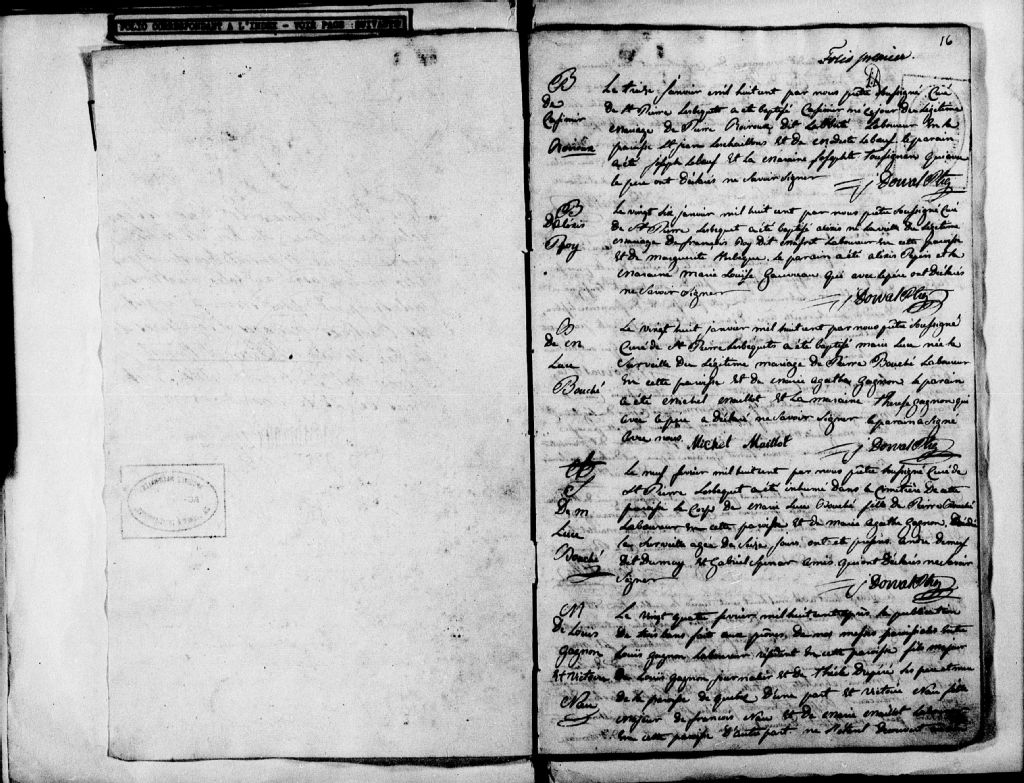 FOLIO CORRESPONDANT A L'INDEX - VOIR PAGE SUIVANTE
16
Folio premier
B
de
Casimir
Le treize janvier mil huit cent par nous prêtre soussigné Curé
de St Pierre Lesbequets a été baptisé Casimir né ce jour du légitime
mariage de Pierre dit Laboureur en la
paroisse St jean Deschaillons et de Lebeuf le parain
a été joseph Lebeuf et la maraine josephte Tousignan qui avec
le pere ont déclarés ne savoir signer
Dorval Ptre
B
D'alexis
Roy
Le vingt six janvier mil huit cent par nous prêtre soussigné Curé
de St Pierre Lesbequet a été baptisé alexis né la veille du légitime
mariage de françois Roy dit Laboureur en cette paroisse
et de marguerite le parain a été alexis Pepin et la
maraine marie Louise Gauvreau qui avec le père ont déclarés
ne savoir signer
Dorval Ptre
B
De m
Luce
Bouché
Le vingt huit janvier mil huit cent par nous prêtre soussigné
Curé de St Pierre Lesbequets a été baptisé marie Luce née le
surveille du légitime mariage de Pierre Bouché Laboureur
en cette paroisse et de marie agathe Gagnon le parain
a été michel maillot et la maraine therese gagnon qui
avec le père a déclaré ne savoir signer le parain a signé
avec nous.
Michel Maillot
Dorval Ptre
S
De m
Luce
Bouché
Le neuf fevrier mil huit cent par nous prêtre soussigné Curé de
St Pierre Lesbequet a été inhumé dans le cimetière de cette
paroisse le Corps de marie Luce Bouché fille de Pierre Bouché
Laboureur en cette paroisse et de marie agathe Gagnon,
la surveille agée de seize jours, ont été présens andre
dit et Gabriel amis qui ont déclarés ne savoir
signer
Dorval Ptre
M
De Louis
Gagnon
et Victoire
Nau
Le vingt quatre fevrier mil huit cent après la publication
de trois bans fait aux prônes de nos messes paroissiales entre
Louis gagnon Laboureur résident en cette paroisse fils majeur
De Louis gagnon, journalier et de thècle les pere et mere
de la paroisse de quebec d'une part et Victoire Nau fille
majeure de francois Nau et de marie maillot
en cette paroisse d'autre part ne s'étant decouvert